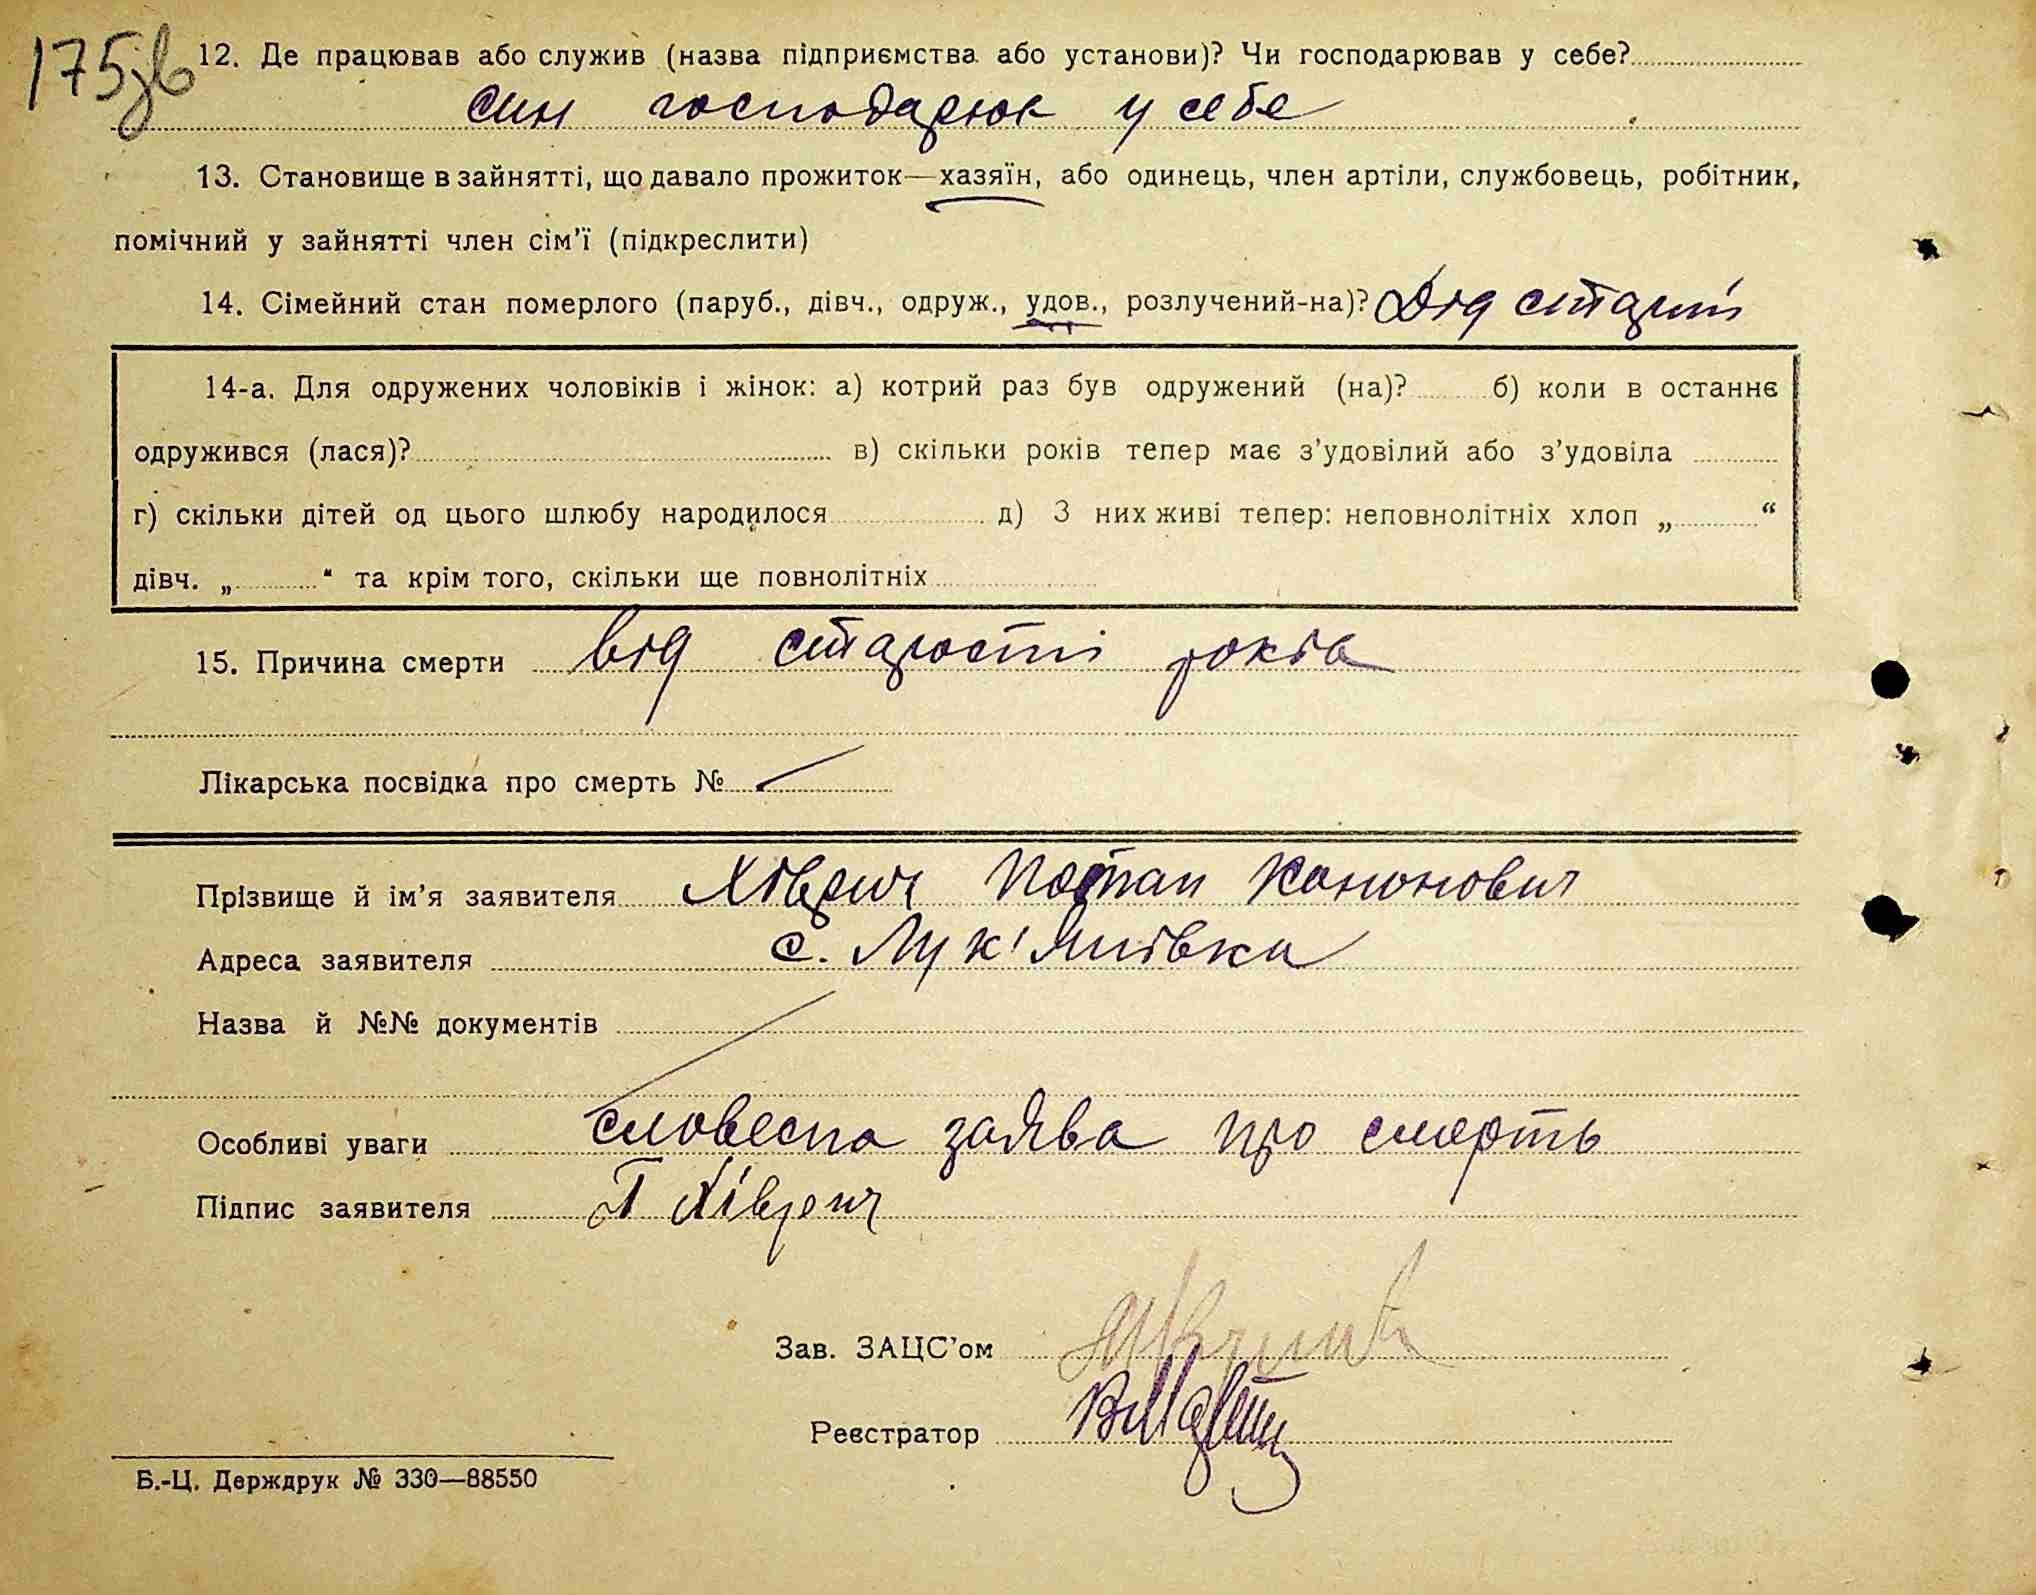 175зв
12. Де працював або служив (назва підприємства або установи)? Чи господарював у себе?
син господарює у себе
13. Становище в зайнятті, що давало прожиток—хазяїн, або одинець, член артіли, службовець, робітник,
помічний у зайнятті член сім'ї (підкреслити)
14. Сімейний стан померлого (паруб., дівч., одруж., удов., розлучений-на)? Дід старий
14-а. Для одружених чоловіків і жінок: а) котрий раз був одружений (на)? б) коли в останнє
одружився (лася)? в) скільки років тепер має з'удовілий або з'удовіла
г) скільки дітей од цього шлюбу народилося д) З них живі тепер: неповнолітніх хлоп „ “
дівч. „ “ та крім того, скільки ще повнолітніх
15. Причина смерти від старости років
Лікарська посвідка про смерть №
Прізвище й ім'я заявителя Хіврич Потап Кононович
Адреса заявителя с. Лук'янівка
Назва й №№ документів
Особливі уваги словесна заява про смерть
Підпис заявителя П Хіврич
Зав. ЗАЦС'ом
Реєстратор
Б.-Ц. Держдрук № 330—88550